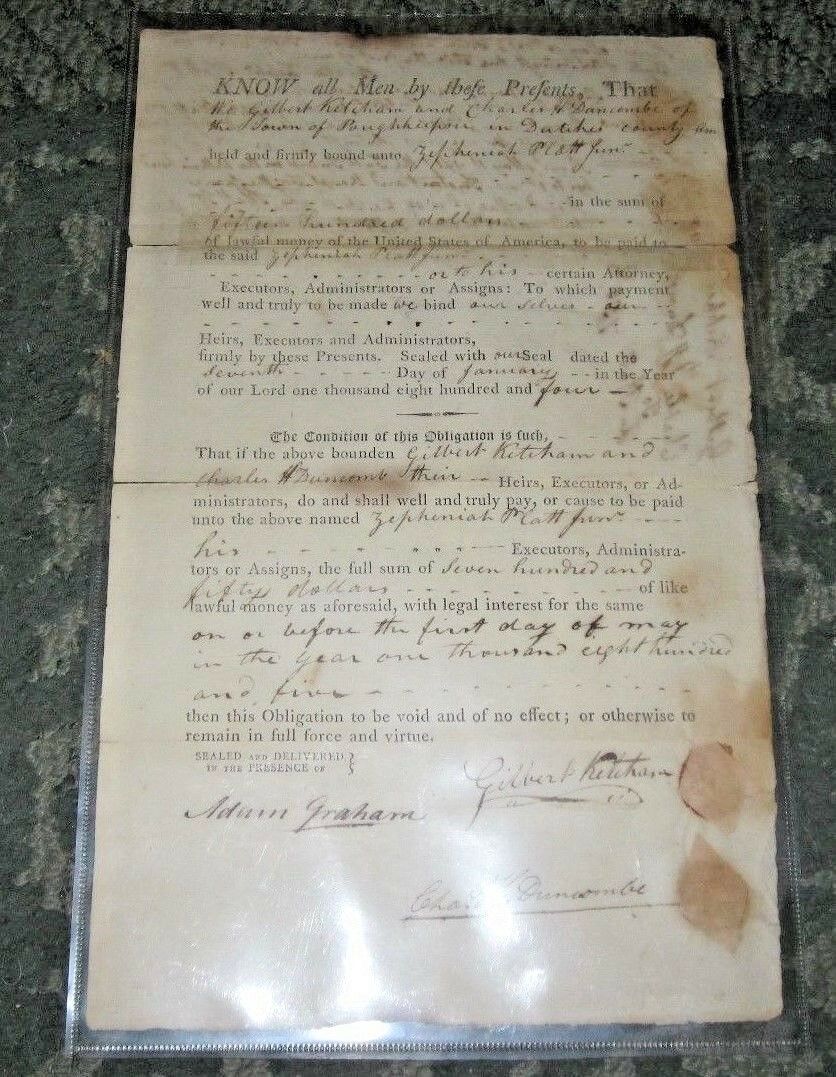 KNOW all Men by these Presents, That
We Gilbert Ketcham and Charles H Duncombe of
the Town of Poughkeepsie in Dutches county am
held and firmly bound unto Zepheniah Platt Junr
in the sum of
fifteen hundred dollars
of lawful money of the United States of America, to be paid to
the said Zepheniah Platt Junr
or to his certain Attorney,
Executors, Administrators or Assigns: To which payment
well and truly to be made we bind our selves our
Heirs, Executors and Administrators,
firmly by these Presents. Sealed with our Seal dated the
Seventh Day of January in the Year
of our Lord one thousand eight hundred and four
The Condition of this Obligation is such,
That if the above bounden Gilbert Ketcham and
Charles H Duncomb their Heirs, Executors, or Ad-
ministrators, do and shall well and truly pay, or cause to be paid
unto the above named Zepheniah Platt Junr
his Executors, Administra-
tors or Assigns, the full sum of Seven hundred and
fifty dollars of like
lawful money as aforesaid, with legal interest for the same
on or before the first day of may
in the year one thousand eight hundred
and five
then this Obligation to be void and of no effect; or otherwise to
remain in full force and virtue.
SEALED AND DELIVERED }
IN THE PRESENCE OF
Gilbert Ketcham
Adam Graham
Chas H Duncombe